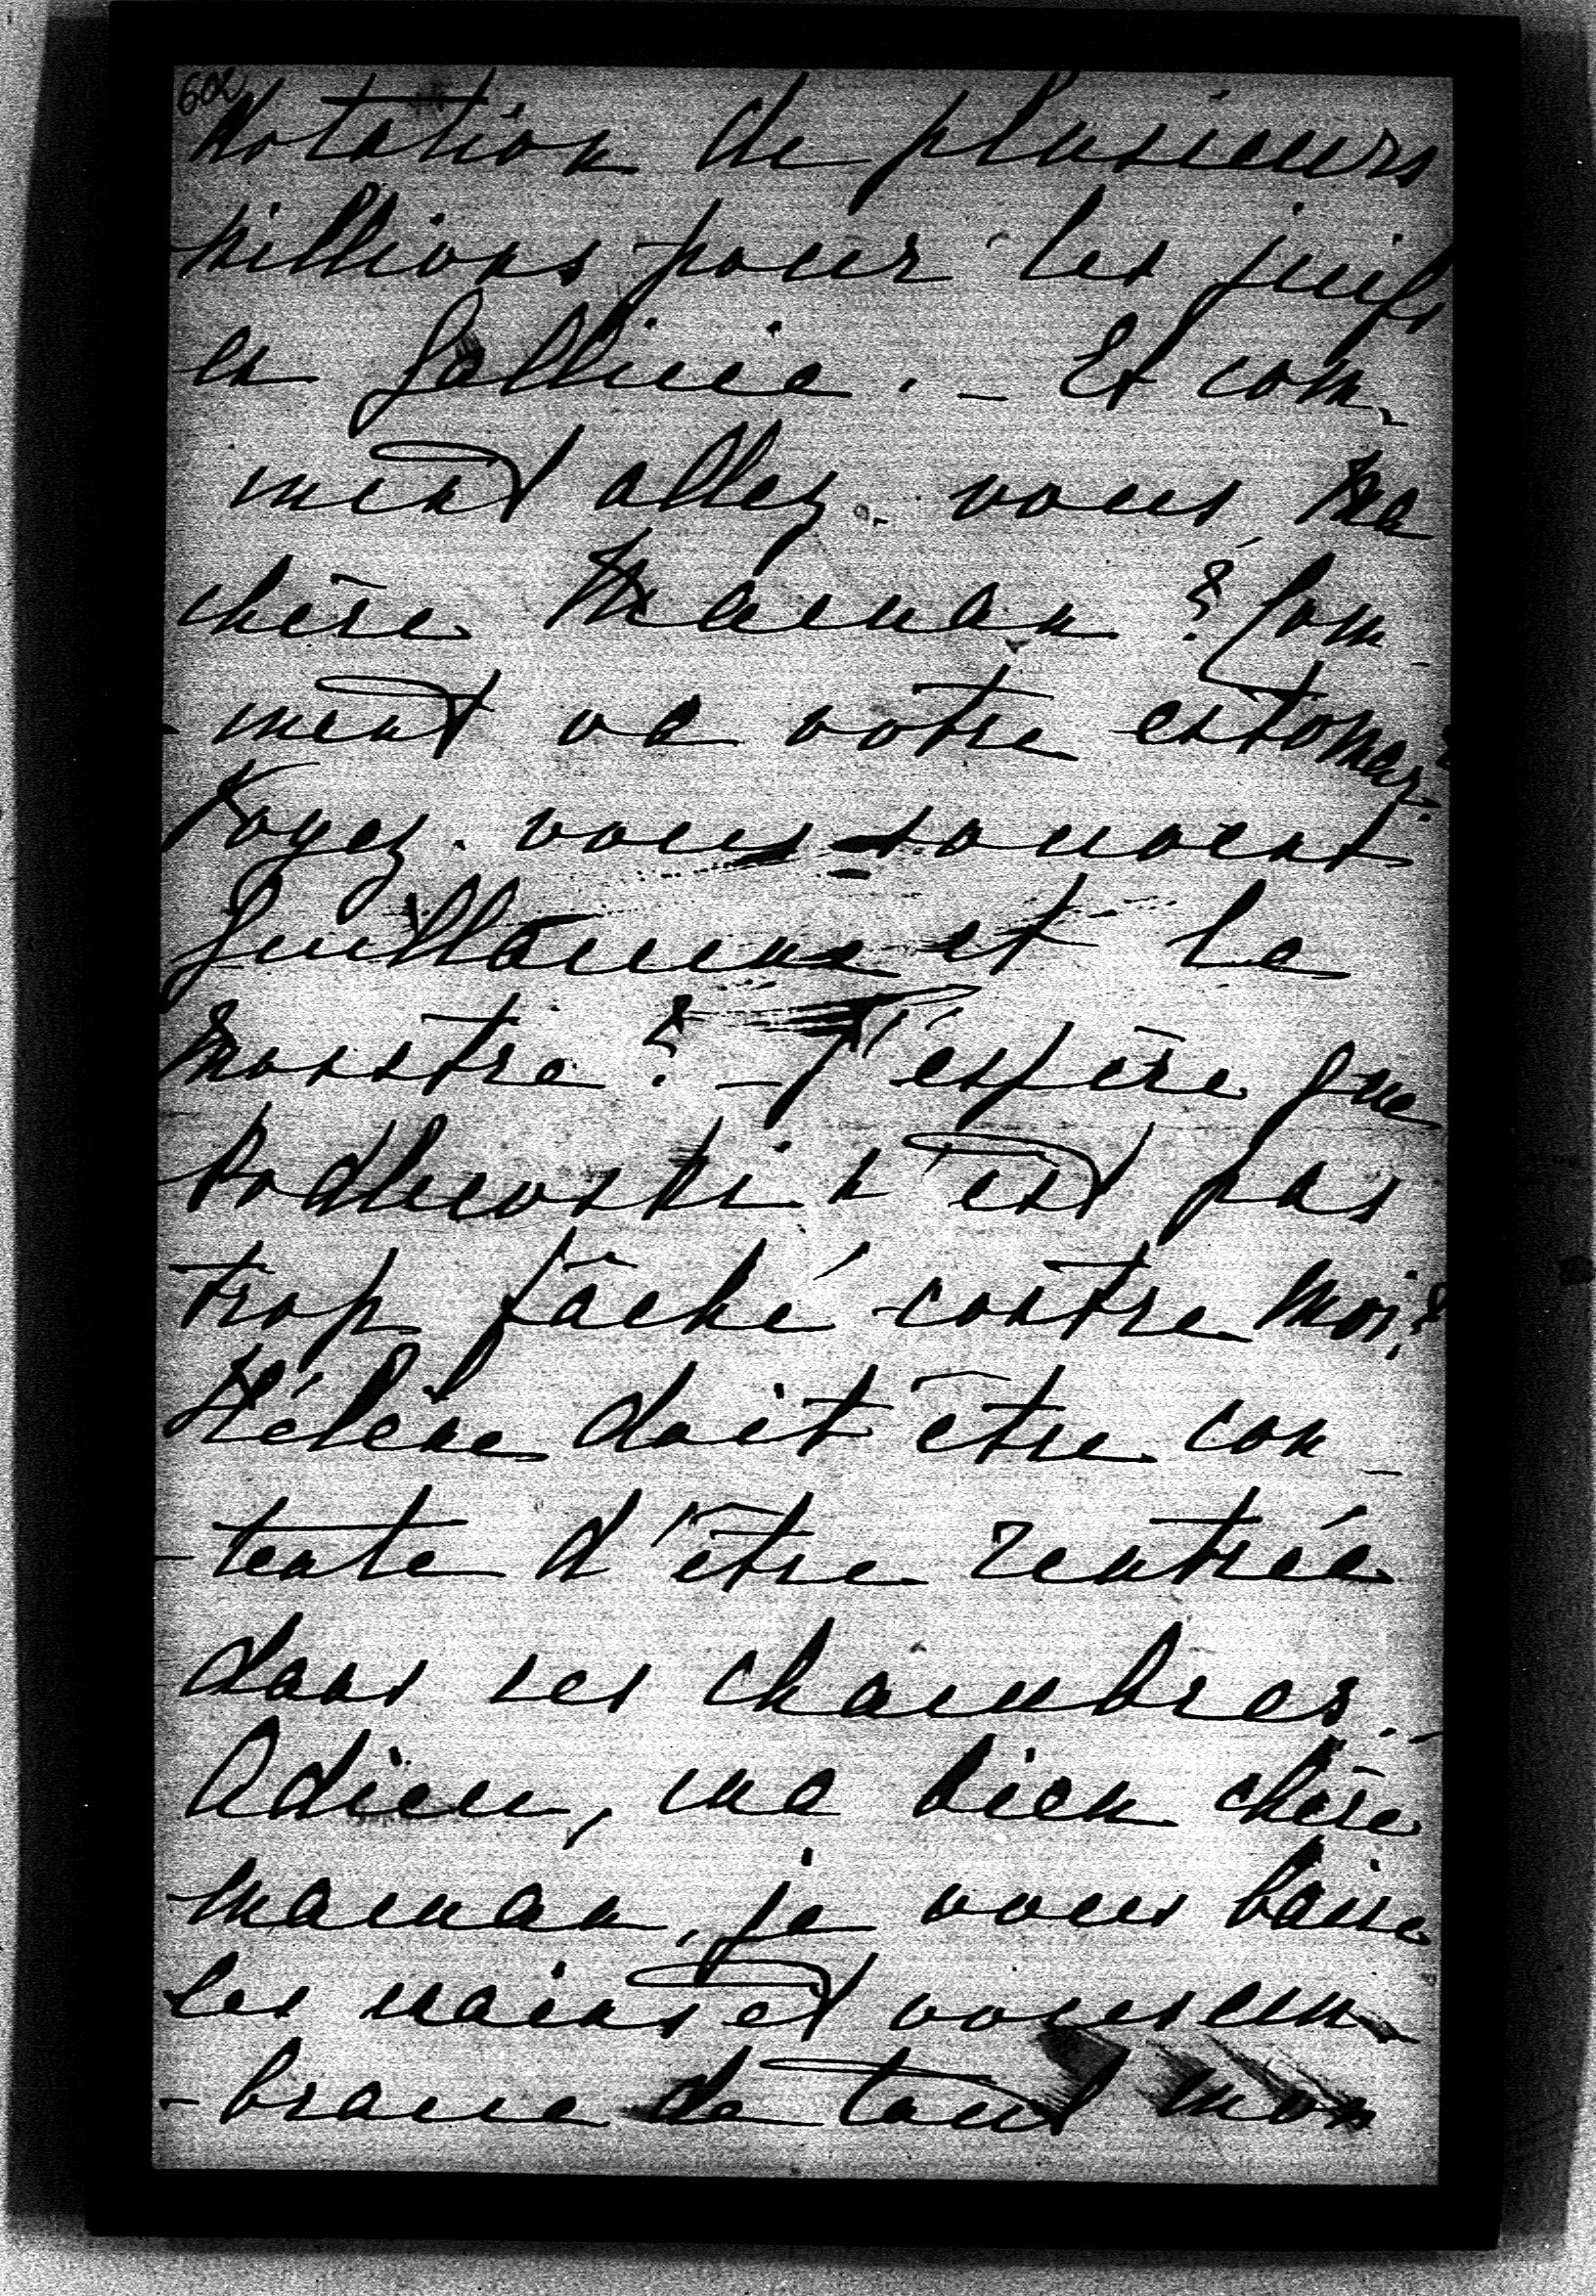 602
dotation de plusieurs
millions pour les juifs
en Gallicie. _ Et com-
ment allez-vous ma
chère Maman? Com-
-ment va votre estomac?
Voyez-vous souvent
Guillaume et le
monstre? _ J'espère que
Podlewski n'est pas
trop fâché contre moi?
Hélène doit être con-
-tente d'être rentrée
dans ses chambres. _
Adieu, ma bien chère
maman, je vous baise
les mains et vous em-
-brasse de tout mon